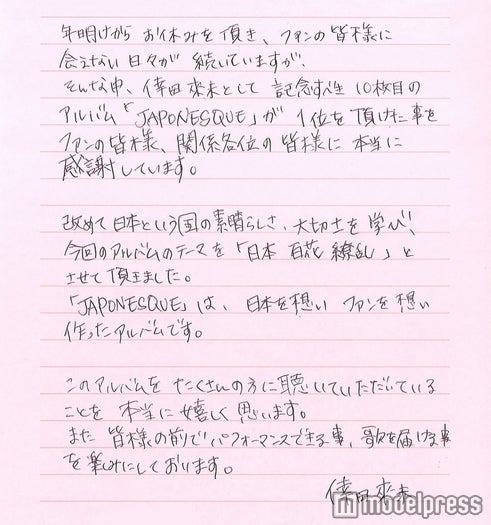 年明けから お休みを頂き、ファンの皆様に
会えない日々が 続いていますが、
そんな中、倖田來未として 記念すべき 10枚目の
アルバム「JAPONESQUE」が 1位を頂けた事を
ファンの皆様、関係各位の 皆様に 本当に
感謝しています。
改めて日本という国の素晴らしさ、大切さを学び、
今回のアルバムのテーマを「日本 百花繚乱」と
させて頂きました。
「JAPONESQUE」は、日本を想い ファンを想い
作ったアルバムです。
このアルバムを たくさんの方に聴いていただいている
ことを 本当に嬉しく思います。
また 皆様の前でパフォーマンスできる事、歌を届ける事
を楽しみにしております。
倖田來未
modelpress